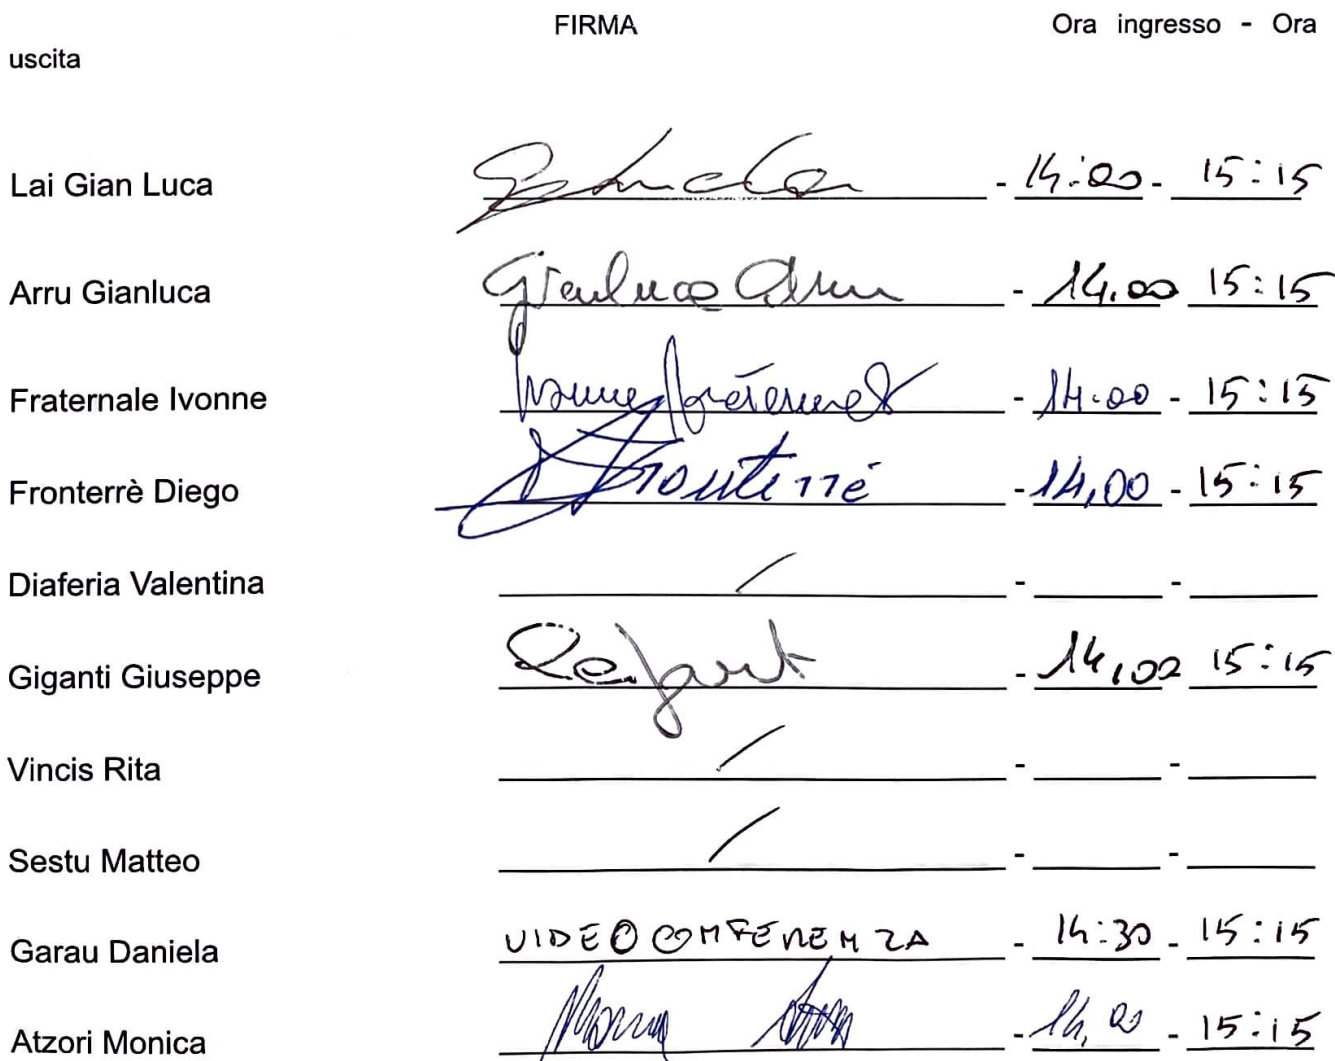 FIRMA Ora ingresso - Ora
uscita
Lai Gian Luca - 14:00 - 15:15
Arru Gianluca Gianluca Arru - 14.00 15:15
Fraternale Ivonne Ivonne Fraternale - 14.00 - 15:15
Fronterrè Diego Fronterré - 14,00 - 15:15
Diaferia Valentina / - -
Giganti Giuseppe - 14,00 15:15
Vincis Rita / - -
Sestu Matteo / - -
Garau Daniela VIDEOCONFERENZA - 14:30 - 15:15
Atzori Monica - 14,00 - 15:15